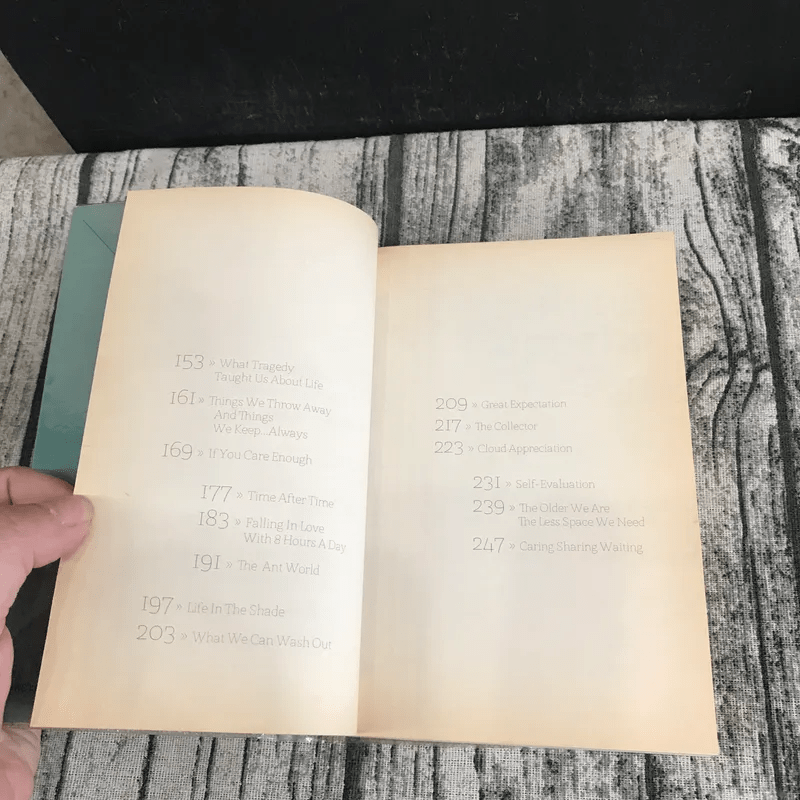 153 » What Tragedy
Taught Us About Life
161 » Things We Throw Away
And Things
We Keep...Always
169 » If You Care Enough
177 » Time After Time
183 » Falling In Love
With 8 Hours A Day
191 » The Ant World
197 » Life In The Shade
203 » What We Can Wash Out
209 » Great Expectation
217 » The Collector
223 » Cloud Appreciation
231 » Self-Evaluation
239 » The Older We Are
The Less Space We Need
247 » Caring Sharing Waiting